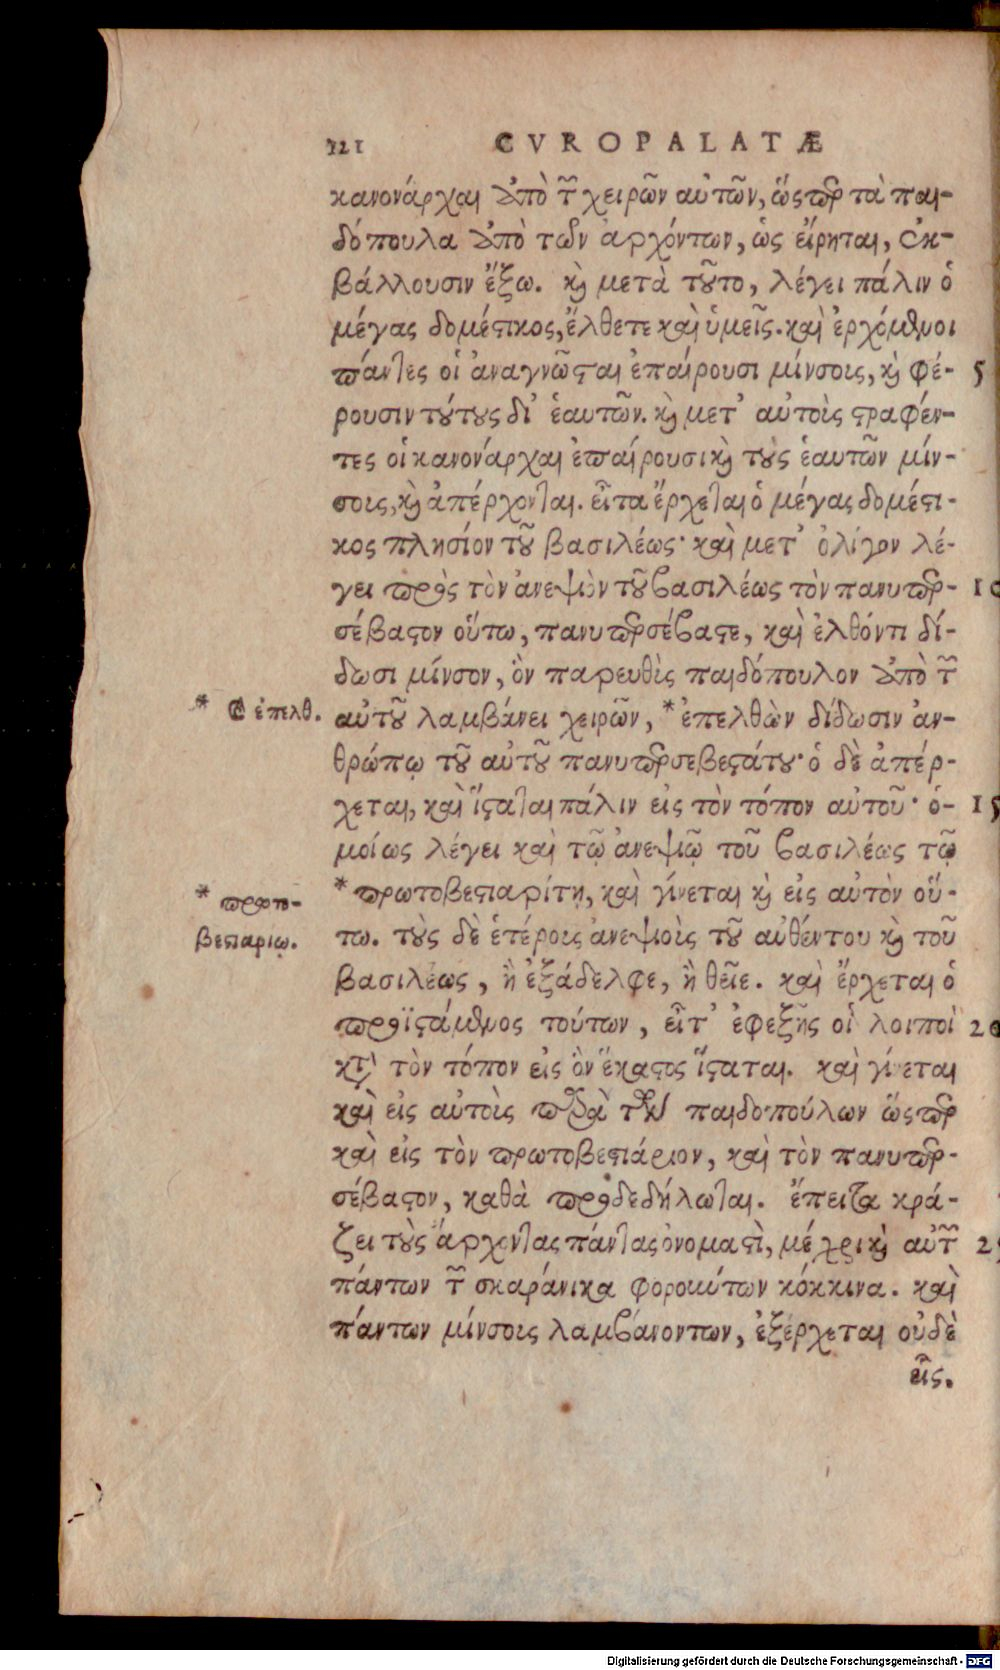 121 CVROPALATÆ
κανονάρχαι ἀπὸ τῶν χειρῶν αὐτῶν, ὥσπερ τὰ παι-
δόπουλα ἀπὸ τῶν ἀρχόντων, ὡς εἴρηται, ἐκ-
βάλλουσιν ἔξω. καὶ μετὰ τοῦτο, λέγει πάλιν ὁ
μέγας δομέστικος, ἔλθετε καὶ ὑμεῖς. καὶ ἐρχόμενοι
πάντες οἱ ἀναγνῶσται ἐπαίρουσι μίνσους, καὶ φέ- 5
ρουσιν τούτους δι' ἑαυτῶν. καὶ μετ' αὐτοὺς στραφέν-
τες οἱ κανονάρχαι ἐπαίρουσι καὶ τοὺς ἑαυτῶν μίν-
σους, καὶ ἀπέρχονται. εἶτα ἔρχεται ὁ μέγας δομέστι-
κος πλησίον τοῦ βασιλέως· καὶ μετ' ὀλίγον λέ-
γει πρὸς τὸν ἀνεψιὸν τοῦ βασιλέως τὸν πανυπερ- 10
σέβαστον οὕτω, πανυπερσέβαστε, καὶ ἐλθόντι δί-
δωσι μίνσον, ὃν παρευθὺς παιδόπουλον ἀπὸ τῶν
* C ἐπελθ. αὐτοῦ λαμβάνει χειρῶν, * ἐπελθὼν δίδωσιν ἀν-
θρώπῳ τοῦ αὐτοῦ πανυπερσεβεστάτου· ὁ δὲ ἀπέρ-
χεται, καὶ ἵσταται πάλιν εἰς τὸν τόπον αὐτοῦ· ὁ- 15
μοίως λέγει καὶ τῷ ἀνεψιῷ τοῦ βασιλέως τῷ
* πρωτο- * πρωτοβεστιαρίτῃ, καὶ γίνεται καὶ εἰς αὐτὸν οὕ-
βεστιαριῳ. τω. τοὺς δὲ ἑτέρους ἀνεψιοὺς τοῦ αὐθέντου καὶ τοῦ
βασιλέως, ἢ ἐξάδελφε, ἢ θεῖε. καὶ ἔρχεται ὁ
προϊστάμενος τούτων, εἶτ' ἐφεξῆς οἱ λοιποὶ 20
κατὰ τὸν τόπον εἰς ὃν ἕκαστος ἵσταται. καὶ γίνεται
καὶ εἰς αὐτοὺς παρὰ τῶν παιδοπούλων ὥσπερ
καὶ εἰς τὸν πρωτοβεστιάριον, καὶ τὸν πανυπερ-
σέβαστον, καθὰ προδεδήλωται. ἔπειτα κρά-
ζει τοὺς ἄρχοντας πάντας ὀνομαστὶ, μέχρι καὶ αὐτῶν 25
πάντων τῶν σκαράνικα φορούντων κόκκινα. καὶ
πάντων μίνσους λαμβανόντων, ἐξέρχεται οὐδὲ
εἷς.
Digitalisierung gefördert durch die Deutsche Forschungsgemeinschaft - DFG